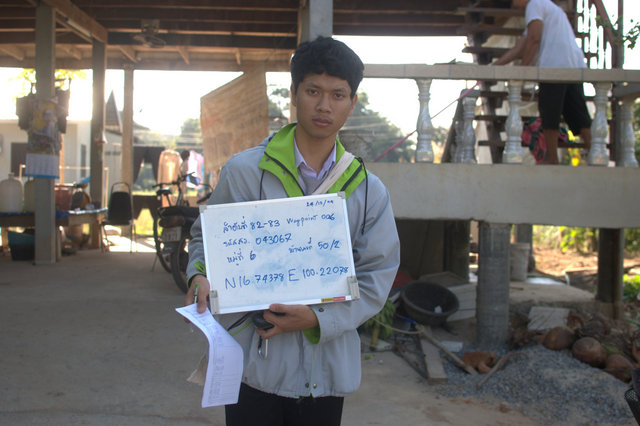 24/12/44
ลำดับที่ 82-83 Waypoint 006
รหัสสว. 043067
หมู่ที่ 6 บ้านเลขที่ 50/2
N16.74378 E 100.22078